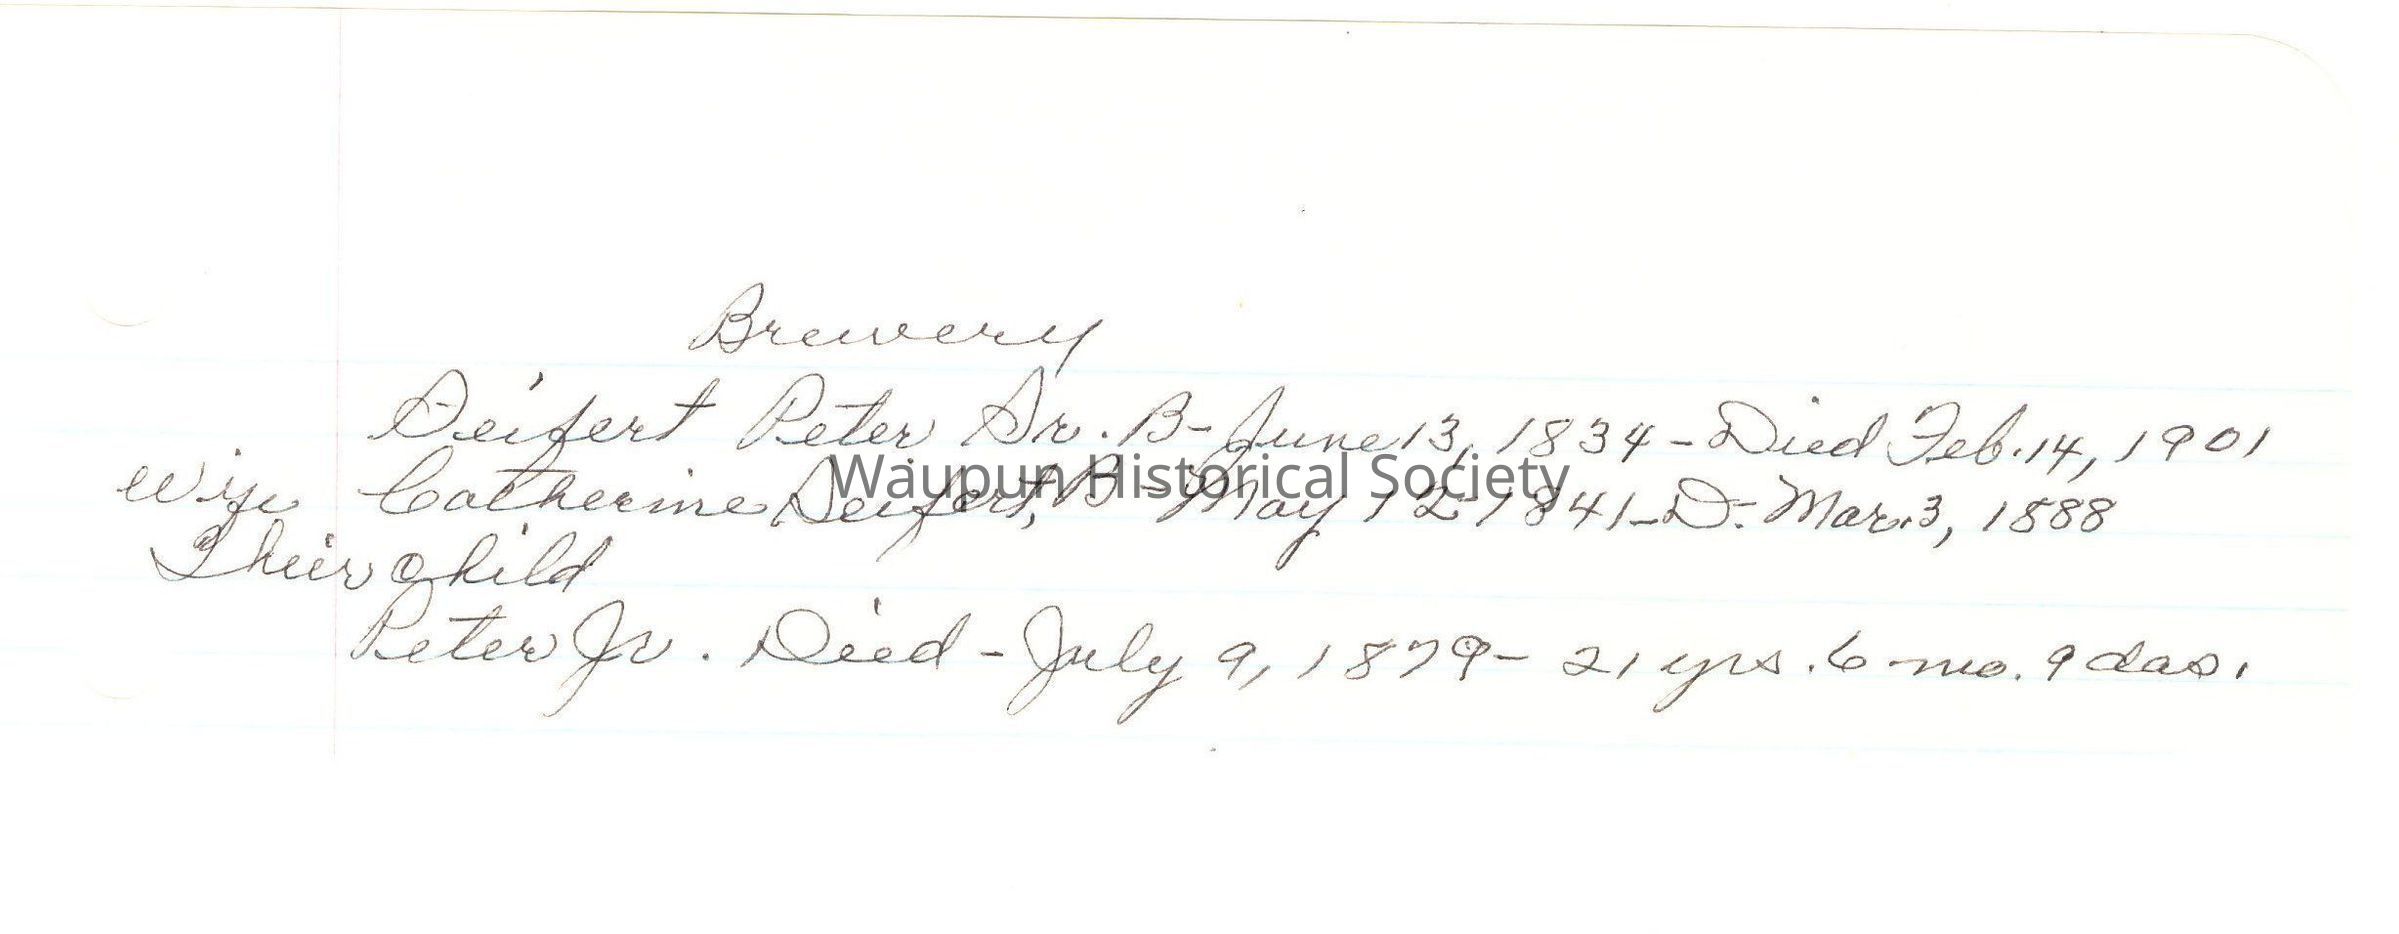 Brewery
Seifert Peter Sr. B-June 13, 1834-Died Feb. 14, 1901
Waupun Historical Society
Wife Catherine Seifert, B-May 12 1841-D. Mar. 3, 1888
Their child
Peter Jr. Died - July 9, 1879- 21 yrs. 6 mo. 9 das.